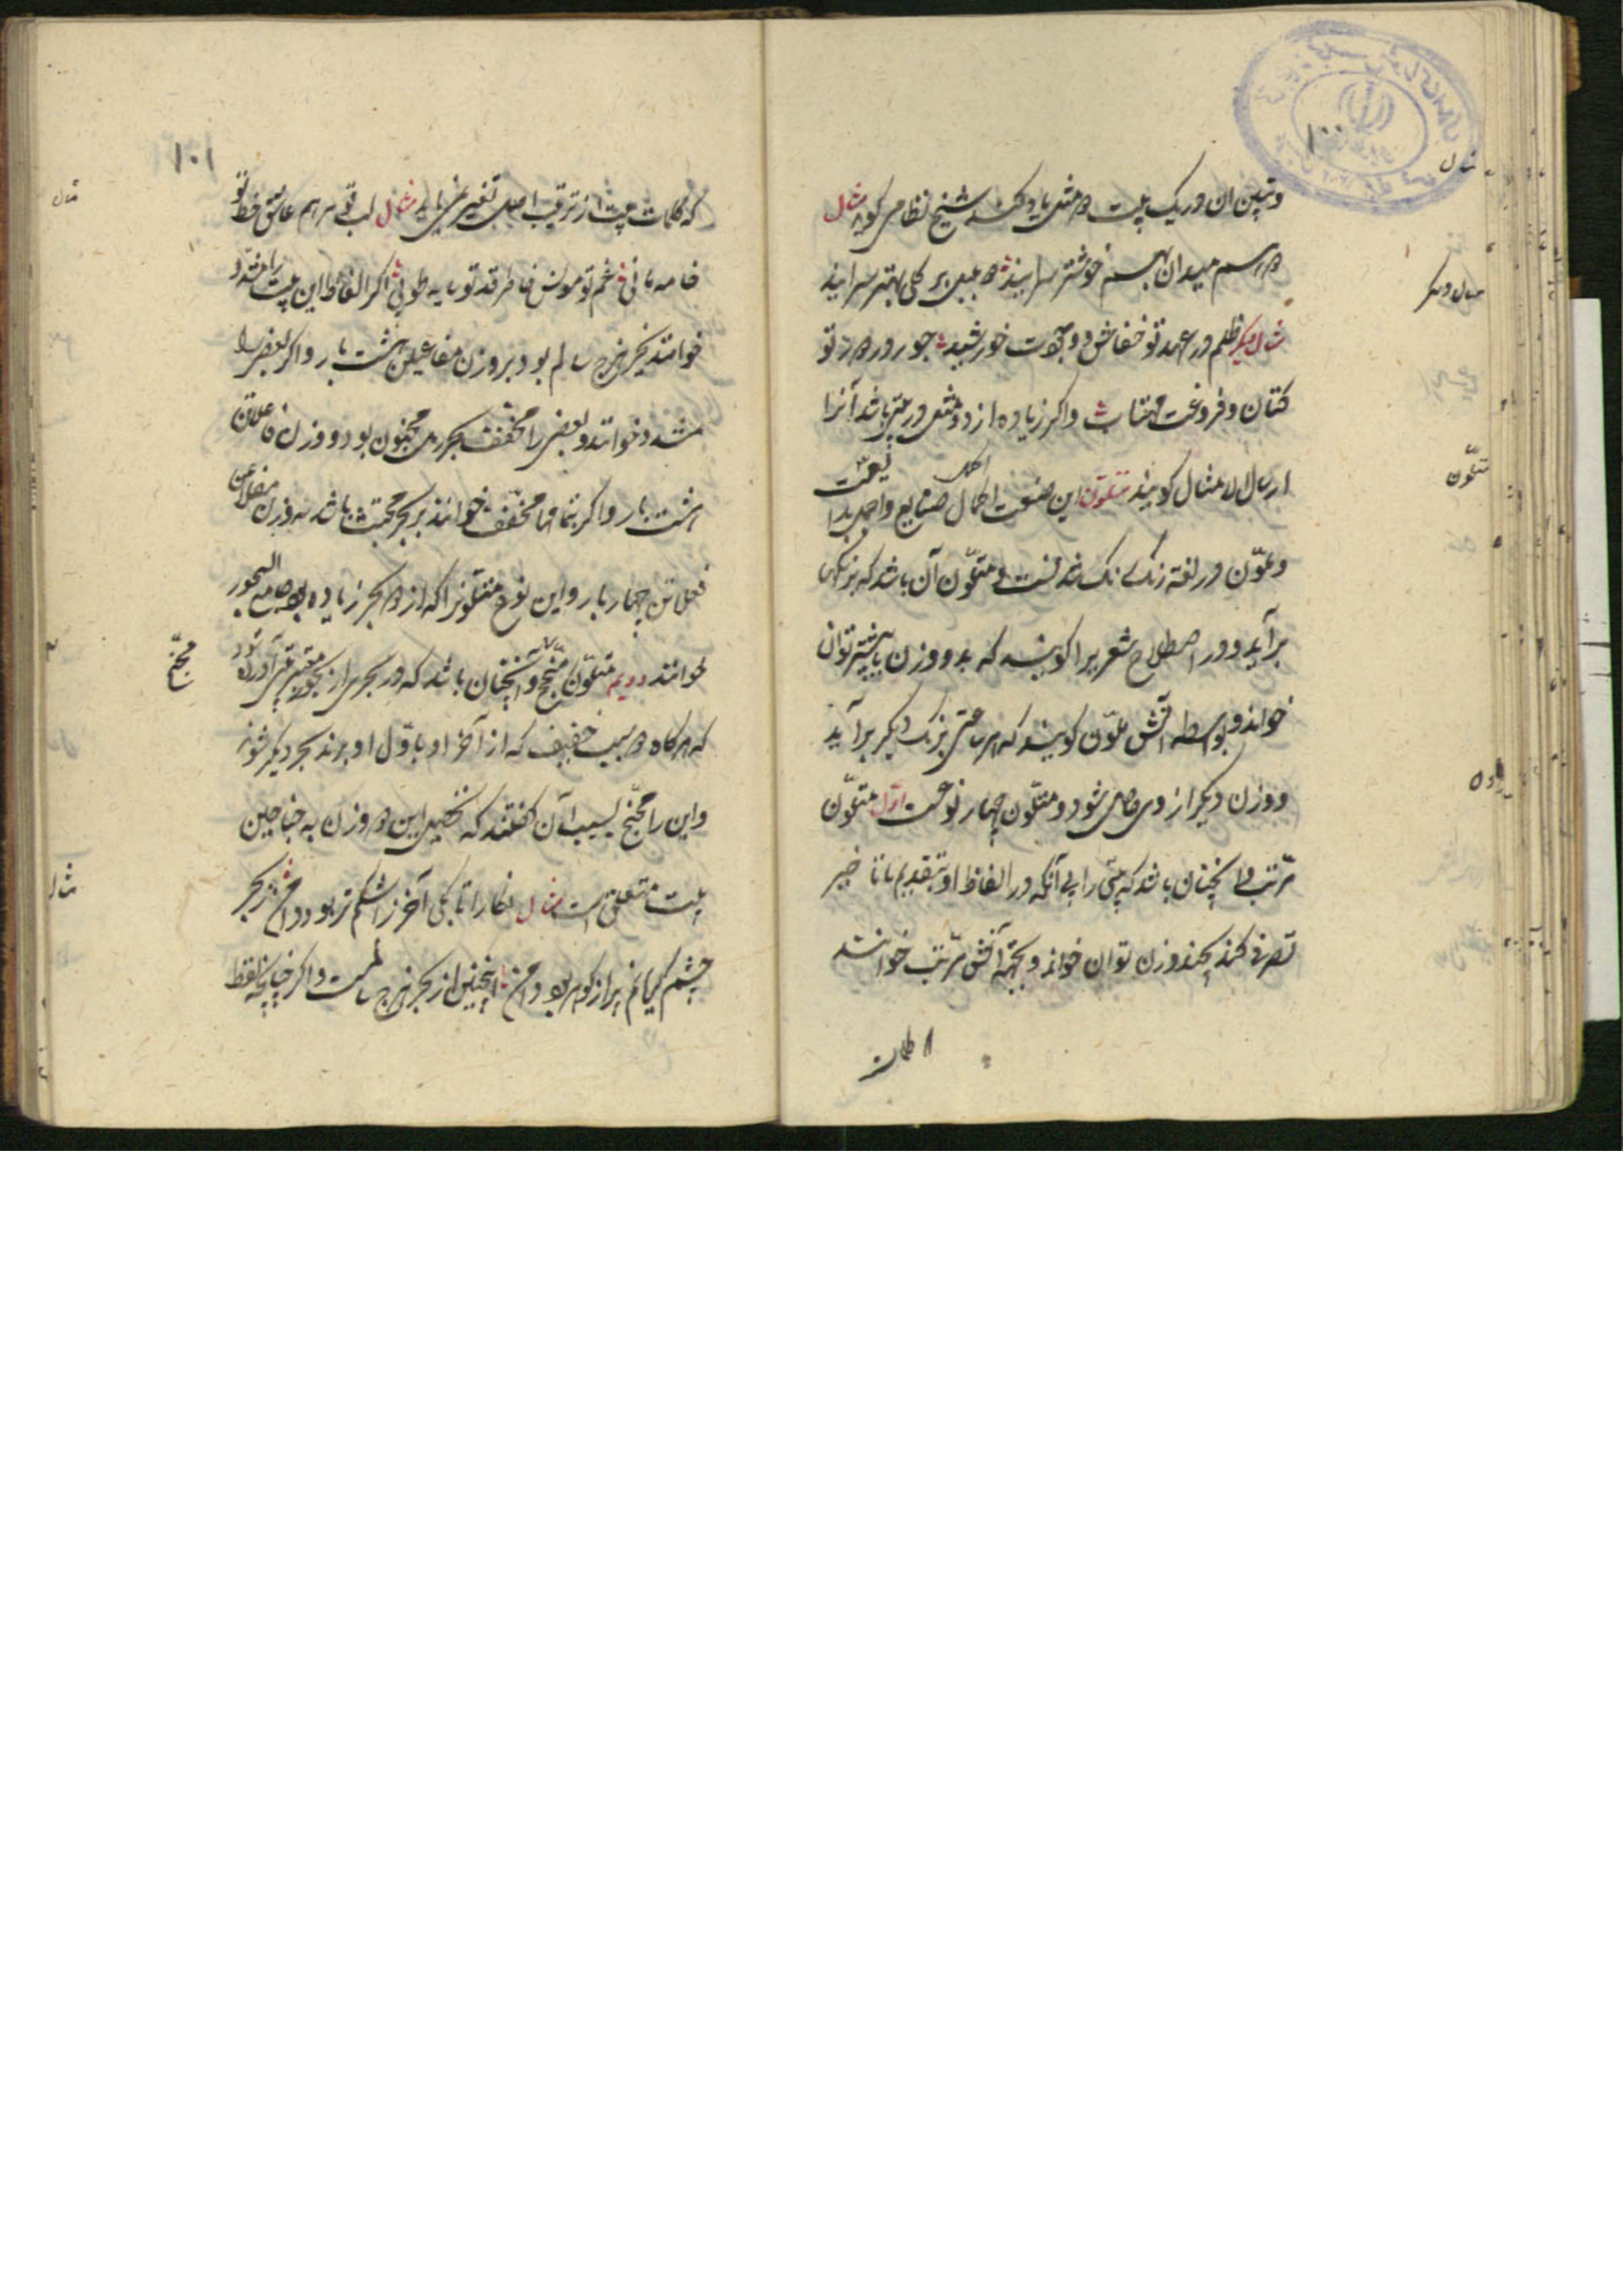 ۱۰۰
مثال
و تبیین ان در یک بیت دو مثل یاد کند شیخ نظامی گوید مثال
دو رسم میدان بهم خوشتر سرایند دو بلبل بر گلی بهتر سرایند
مثال دیگر
مثال دیگر ظلم در عهد تو خفاش و وجودت خورشید جور در دور تو
کتان و فروغت مهتاب و اگر زیاده از دو مثل در بیتی باشد آنرا
متلون
ارسال لامثال گویند متلون این صنعت اکمل صنایع و اجمل بدایعست
و تلون در لغة رنک رنک شدنست و متلون آن باشد که برنگی
برآید و در اصطلاح شعر یرا گویند که بدو وزن یا بیشتر توان
خواند و بواسطه آنش متلون گویند که هر ساعتی برنک دیگر برآید
و وزن دیگر از وی حاصل شود و متلون چهار نوعست اول متلون
مرتب و اینچنان باشد که بیتی را بی آنکه در الفاظ او بتقدیم یا تاخیر
تصرفی کنند بچند وزن توان خواند و بجهة آنش مرتب خوانند
۱۰۱
مثال
که کلمات بیت از ترتیب اصلی تغییر نمی یابد مثال لب تو هم عاشق خط تو
خامه مانی غم تو مونس خاطر قد تو سایه طوبی اگر الفاظ این بیت را مشدد
خوانند بحر هزج سالم بود بر وزن مفاعیلن هشت بار و اگر بعضی را
مشدد خوانند و بعضی را مخفف بحر رمل مخبون بود و وزن فاعلاتن
هشت بار و اگر بتمامها مخفف خوانند بحر مجتث باشد بر وزن مفاعلن
فعلاتن چهار بار و این نوع متلونرا که از دو بحر زیاده بود جامع البحور
مجنح
خوانند دویم متلون مجنح و آنچنان باشد که در بحری از بحور بیتی آورده شود
که هرگاه دو سبب خفیف که از آخر او یا اول او برند بحر دیگر شود
و این را مجنح بسبب آن گفتند که تحصیل این دو وزن به جناحین
مثال
بیت متعلق است مثال نگارا تا بکی آخر ز اشکم تر بود دامن ز بحر
چشم گریانم پر از گوهر بود دامن اینچنین از بحر هزج سالمست و اگر چنانچه لفظ